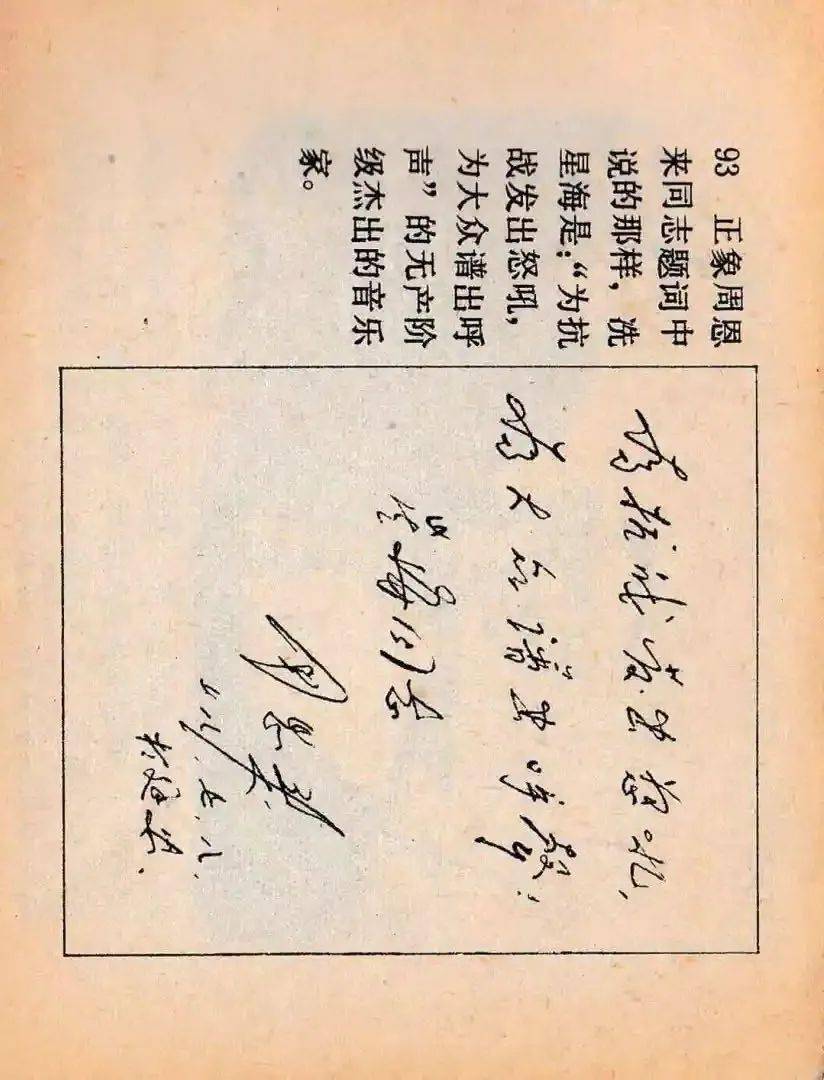 93 正象周恩
来同志题词中
说的那样，冼
星海是：“为抗
战发出怒吼，
为大众谱出呼
声”的无产阶
级杰出的音乐
家。
为抗战发出怒吼，
为大众谱出呼聲！
星海同志
周恩来
廿八、七、八、
于延安.